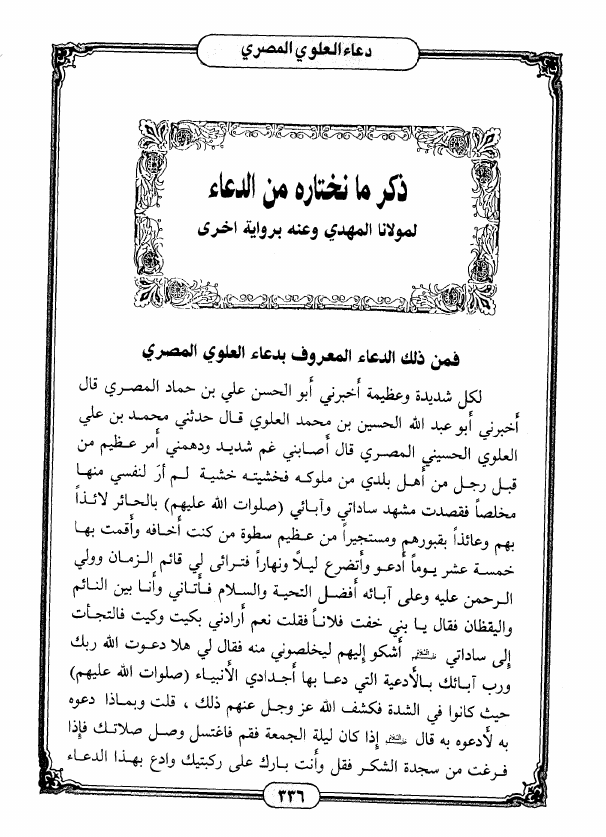 دعاء العلوي المصري
ذكر ما نختاره من الدعاء
لمولانا المهدي وعنه برواية اخرى
فمن ذلك الدعاء المعروف بدعاء العلوي المصري
لكل شديدة وعظيمة أخبرني أبو الحسن علي بن حماد المصري قال
أخبرني أبو عبد الله الحسين بن محمد العلوي قال حدثني محمد بن علي
العلوي الحسيني المصري قال أصابني غم شديد ودهمني أمر عظيم من
قبل رجل من أهل بلدي من ملوكه فخشيته خشية لم أرَ لنفسي منها
مخلصاً فقصدت مشهد ساداتي وآبائي (صلوات الله عليهم) بالحائر لائذاً
بهم وعائذاً بقبورهم ومستجيراً من عظيم سطوة من كنت أخافه وأقمت بها
خمسة عشر يوماً أدعو وأتضرع ليلاً ونهاراً فترائى لي قائم الزمان وولي
الرحمن عليه وعلى آبائه أفضل التحية والسلام فأتاني وأنا بين النائم
واليقظان فقال يا بني خفت فلاناً فقلت نعم أرادني بكيت وكيت فالتجأت
إلى ساداتي أشكو إليهم ليخلصوني منه فقال لي هلا دعوت الله ربك
ورب آبائك بالأدعية التي دعا بها أجدادي الأنبياء (صلوات الله عليهم)
حيث كانوا في الشدة فكشف الله عز وجل عنهم ذلك ، قلت وبماذا دعوه
به لأدعوه به قال إذا كان ليلة الجمعة فقم فاغتسل وصل صلاتك فإذا
فرغت من سجدة الشكر فقل وأنت بارك على ركبتيك وادع بهذا الدعاء
٣٣٦